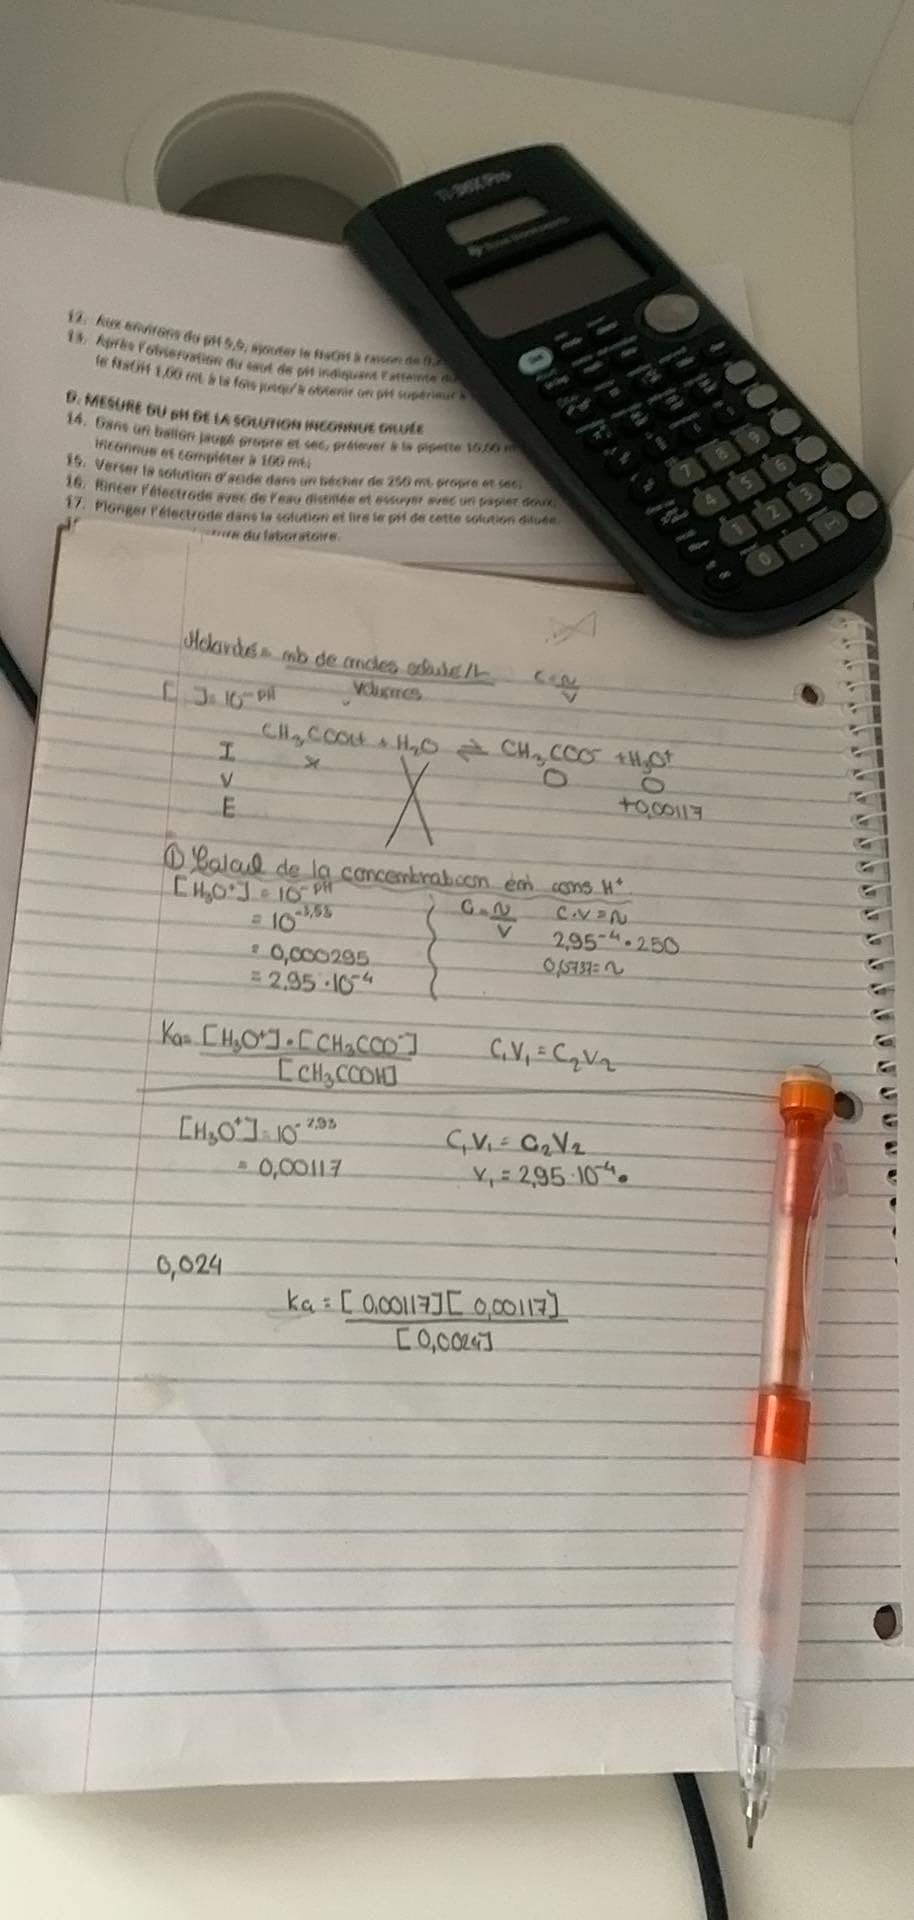 TI-36X Pro
Texas Instruments
12. Aux environs du pH 5,5, ajouter le NaOH à raison de 0,
13. Après l'observation du saut de pH indiquant l'atteinte du
le NaOH 1,00 mL à la fois jusqu'à obtenir un pH supérieur à
D. MESURE DU pH DE LA SOLUTION INCONNUE DILUÉE
14. Dans un ballon jaugé propre et sec, prélever à la pipette 10,00 m
inconnue et compléter à 100 mL.
15. Verser la solution d'acide dans un bécher de 250 mL propre et sec.
16. Rincer l'électrode avec de l'eau distillée et essuyer avec un papier doux.
17. Plonger l'électrode dans la solution et lire le pH de cette solution diluée.
du laboratoire.
7 8 9
4 5 6
1 2 3
0 .
= nb de moles soluté/L C=n/V
[ ]=10^-pH Volumes
CH3COOH + H2O ⇌ CH3COO- + H3O+
I x O O
V +0,00117
E
① Calcul de la concentration en ions H+
[H3O+] = 10^-pH C=n/V C.V=n
= 10^-3,53 2,95^-4 • 250
= 0,000295
= 2,95 · 10^-4
Ka= [H3O+]•[CH3COO-] C1V1=C2V2
[CH3COOH]
[H3O+]=10^-2,93 C1V1=C2V2
= 0,00117 V1=2,95·10^-4•
0,024
Ka = [0,00117][0,00117]
[0,0024]